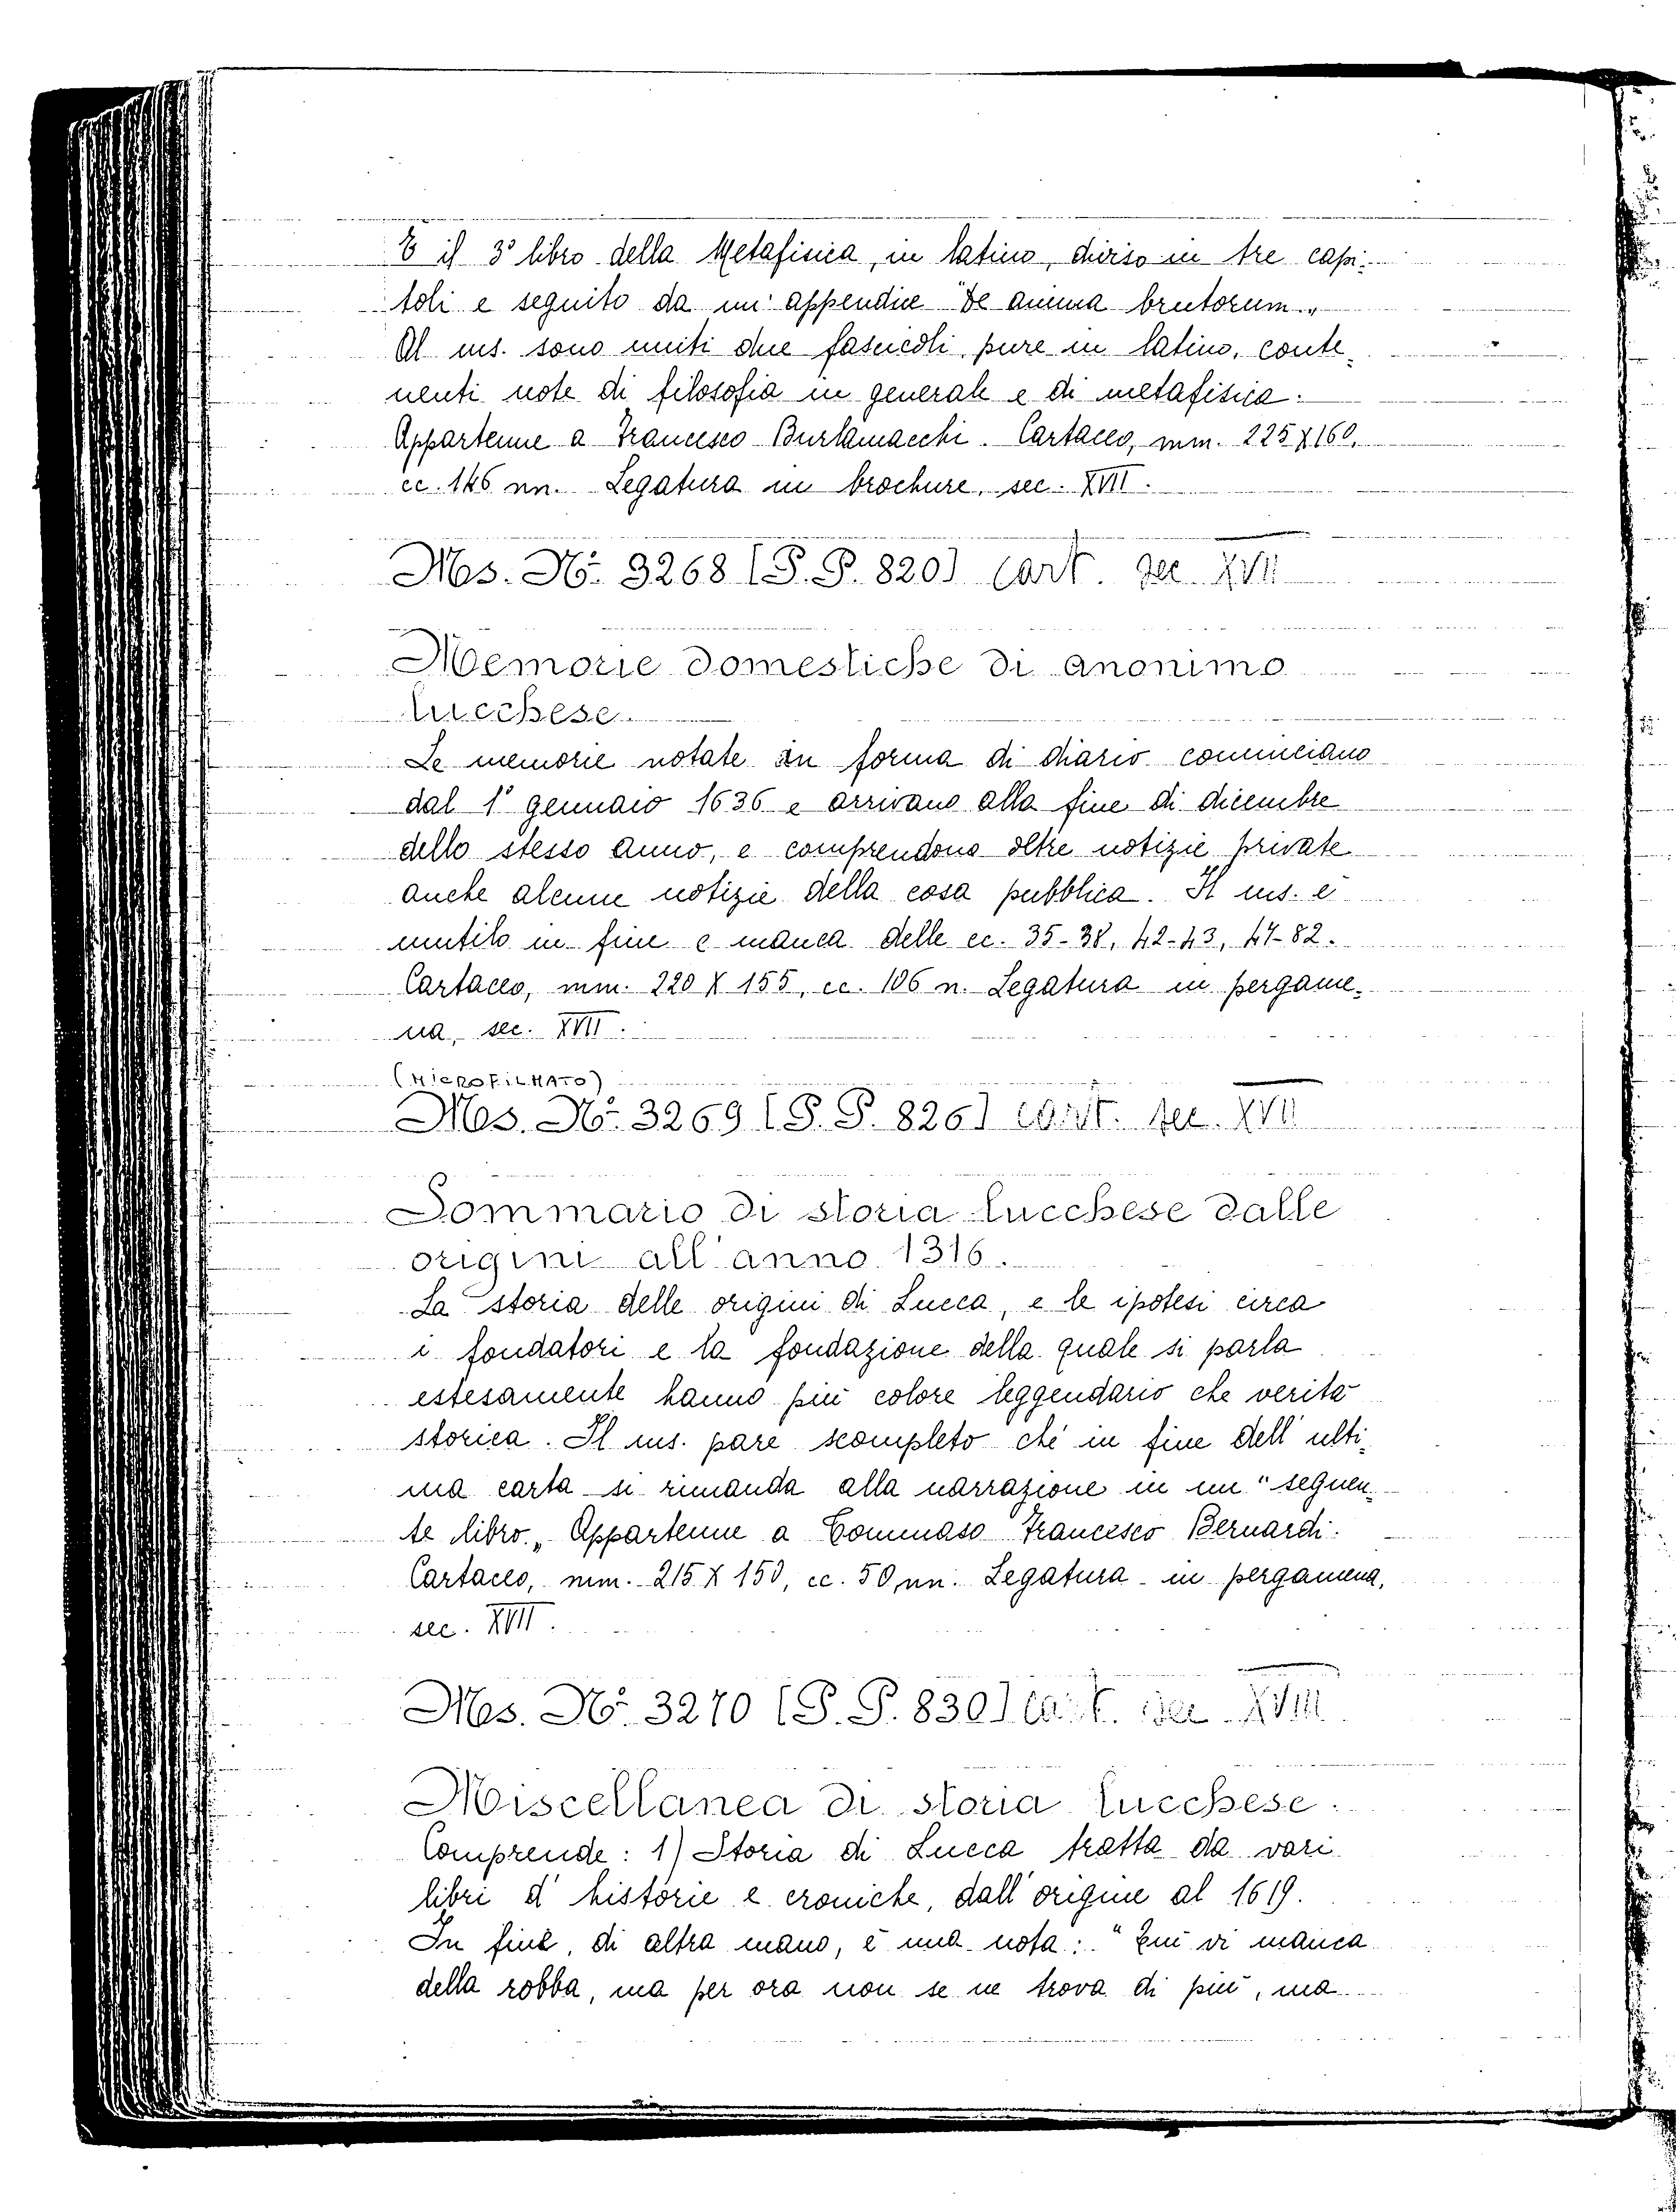 È il 3° libro della Metafisica, in latino, diviso in tre capi-
toli e seguito da un' appendice "De anima brutorum„
Al ms. sono uniti due fascicoli, pure in latino, conte-
nenti note di filosofia in generale e di metafisica.
Appartenne a Francesco Burlamacchi. Cartaceo, mm. 225 X 160,
cc. 146 nn. Legatura in brochure, sec. XVII.
Ms. N°. 3268 [P. P. 820] cart. sec. XVII
Memorie domestiche di anonimo
lucchese.
Le memorie notate in forma di diario cominciano
dal 1° gennaio 1636 e arrivano alla fine di dicembre
dello stesso anno, e comprendono oltre notizie private
anche alcune notizie della cosa pubblica. Il ms. è
mutilo in fine e manca delle cc. 35-38, 42-43, 47-82.
Cartaceo, mm. 220 X 155, cc. 106 n. Legatura in pergame-
na, sec. XVII.
(MICROFILMATO)
Ms. N°. 3269 [P. P. 826] cart. sec. XVII
Sommario di storia lucchese dalle
origini all'anno 1316.
La storia delle origini di Lucca, e le ipotesi circa
i fondatori e la fondazione della quale si parla
estesamente hanno più colore leggendario che verità
storica. Il ms. pare scompleto chè in fine dell' ulti-
ma carta si rimanda alla narrazione in un "seguen-
te libro.„ Appartenne a Tommaso Francesco Bernardi.
Cartaceo, mm. 215 X 150, cc. 50 nn. Legatura in pergamena,
sec. XVII.
Ms. N°. 3270 [P. P. 830] cart. sec. XVIII
Miscellanea di storia lucchese.
Comprende: 1) Storia di Lucca tratta da vari
libri d' historie e croniche, dall' origine al 1619.
In fine, di altra mano, è una nota: "Qui vi manca
della robba, ma per ora non se ne trova di più, ma